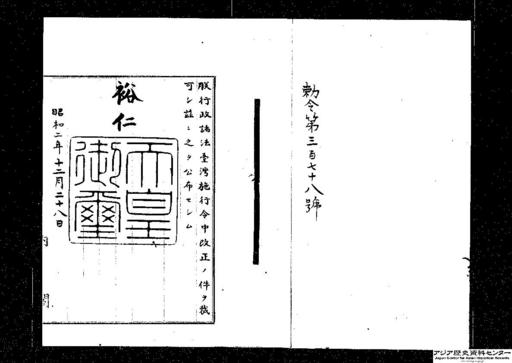 勅令第三百七十八號
朕行政諸法臺灣施行令中改正ノ件ヲ裁
可シ茲ニ之ヲ公布セシム
裕仁
天皇御璽
昭和二年十二月二十八日
内閣
アジア歴史資料センター
Japan Center for Asian Historical Records